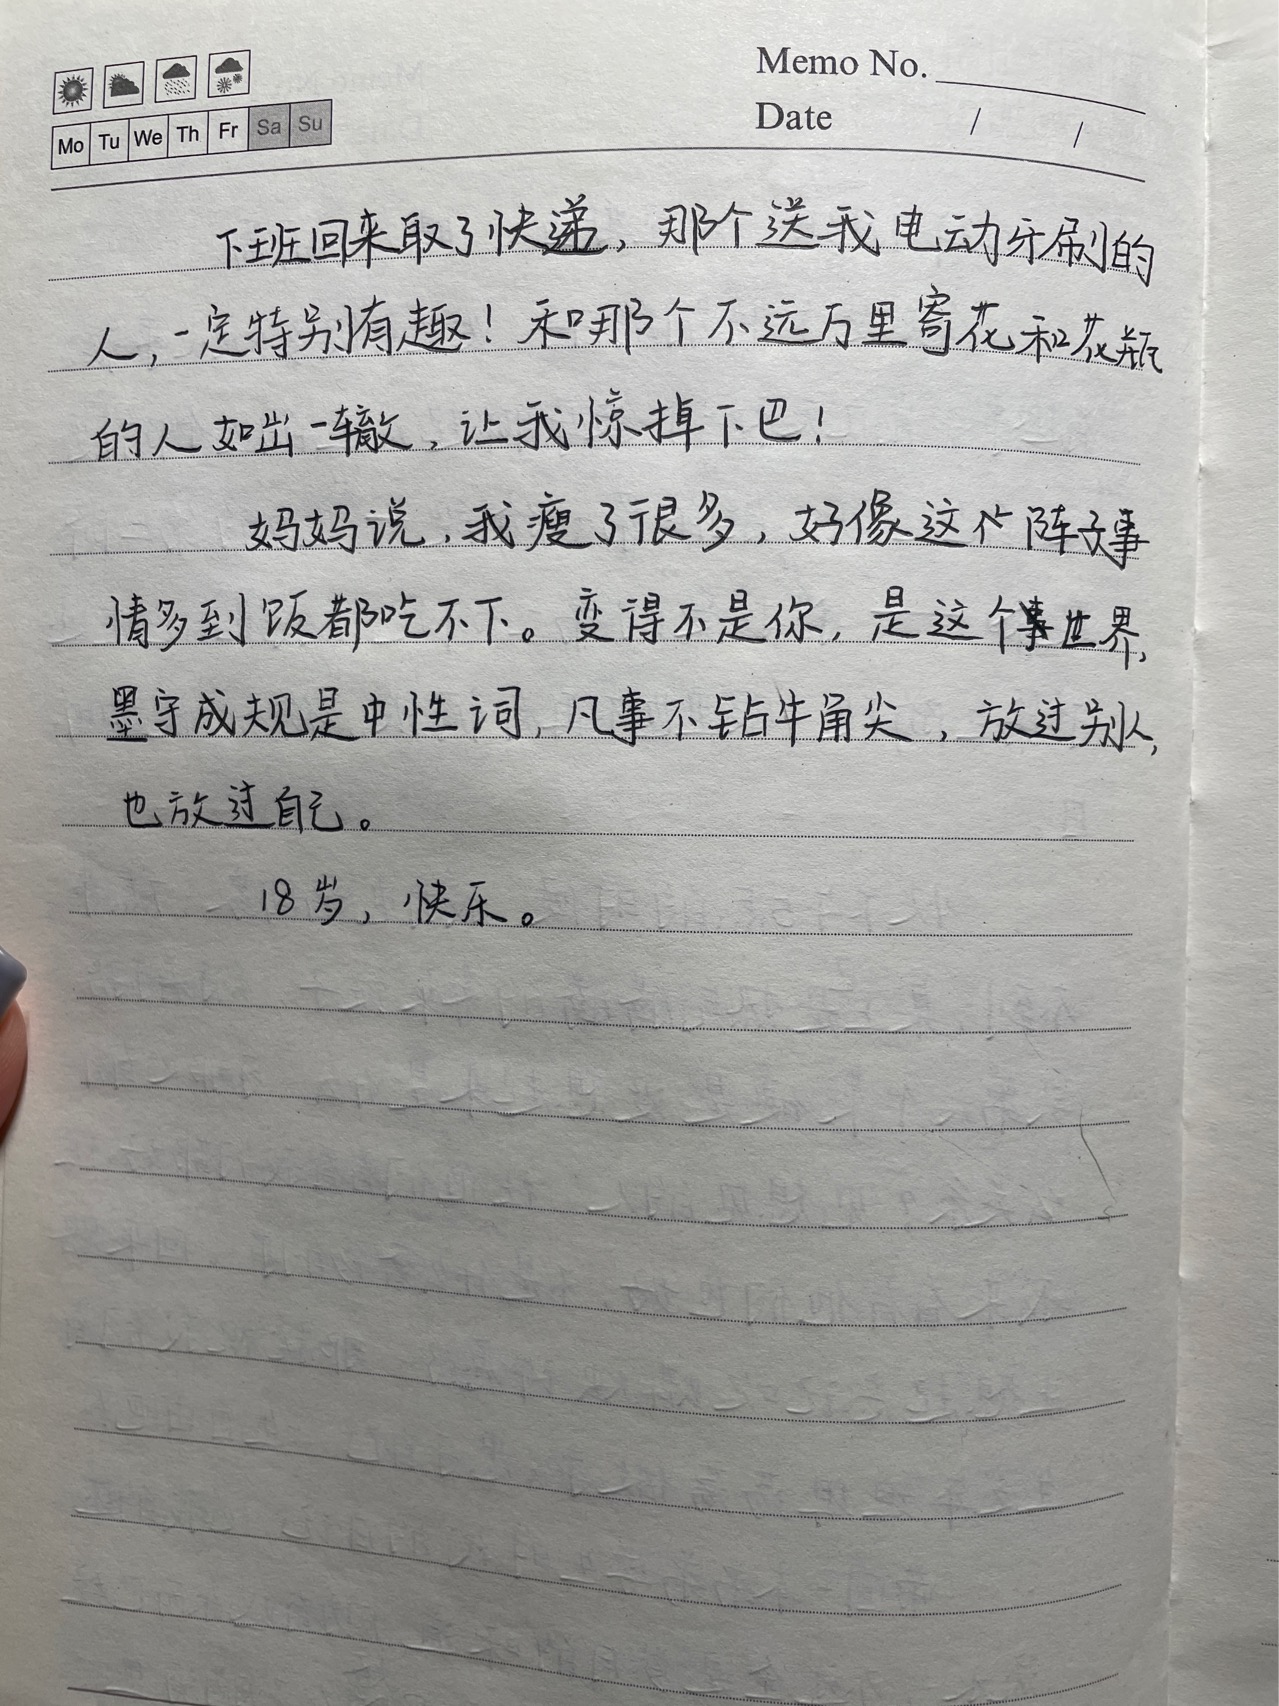 Memo No.
Date / /
Mo Tu We Th Fr Sa Su
下班回来取了快递，那个送我电动牙刷的
人，一定特别有趣！和那个不远万里寄花和花瓶
的人如出一辙，让我惊掉下巴！
妈妈说，我瘦了很多，好像这个阵子事
情多到饭都吃不下。变得不是你，是这个世界，
墨守成规是中性词，凡事不钻牛角尖，放过别人，
也放过自己。
18岁，快乐。